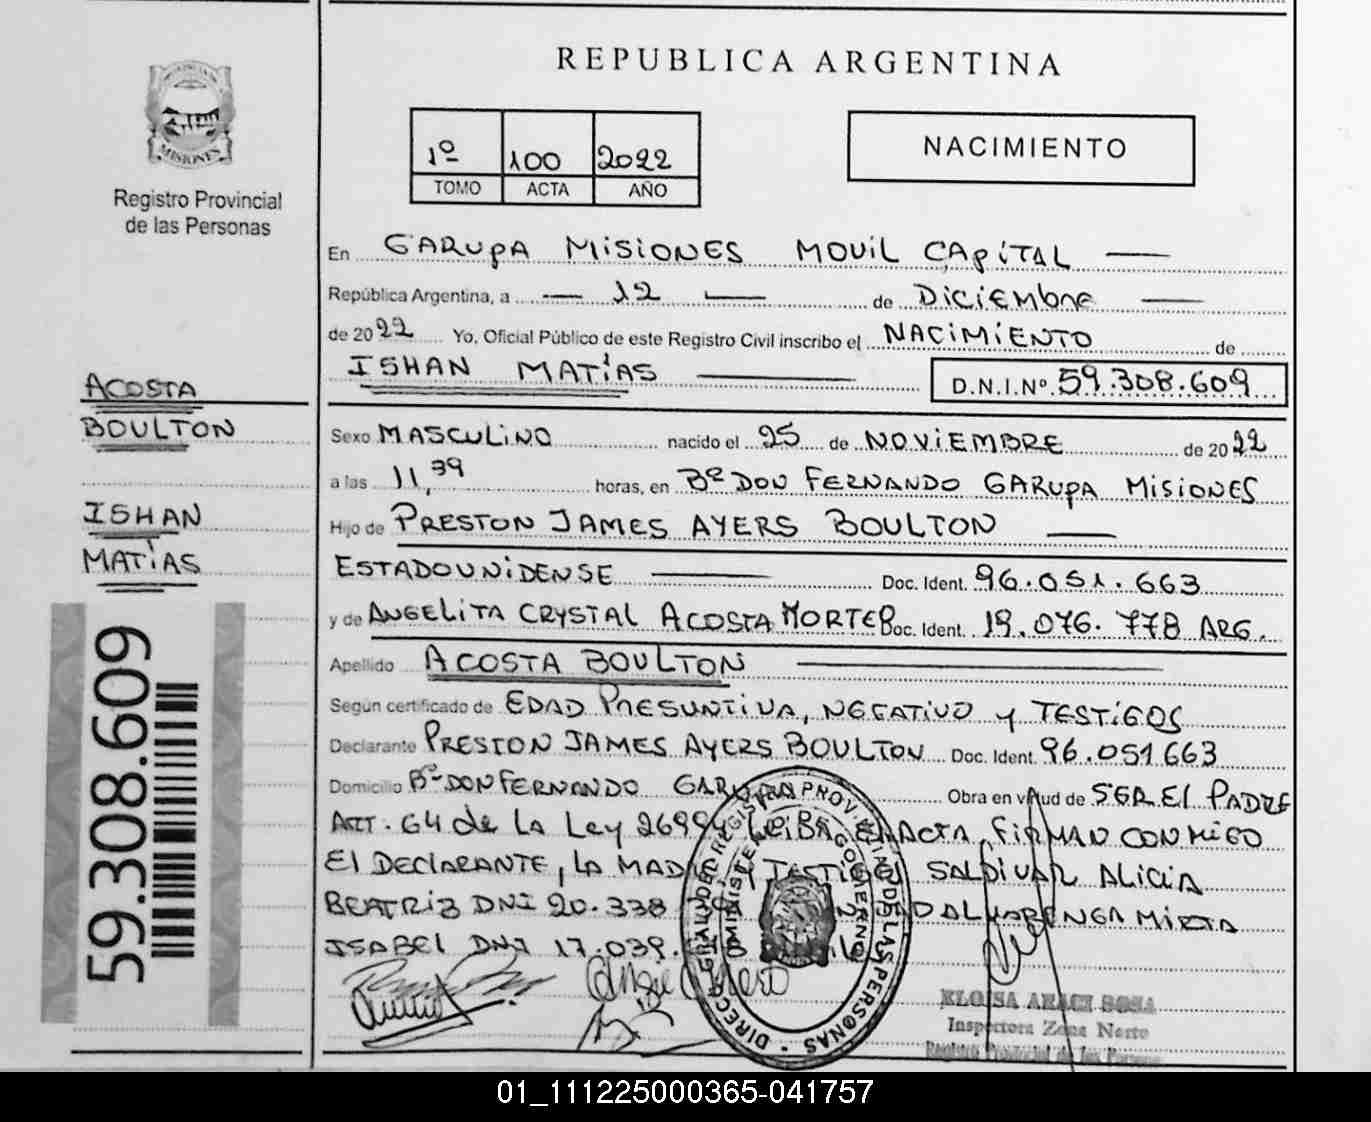 REPUBLICA ARGENTINA
MISIONES
Registro Provincial
de las Personas
1º 100 2022
TOMO ACTA AÑO
NACIMIENTO
En GARUPA MISIONES MOVIL CAPITAL
República Argentina, a 12 de DICIEMBRE
de 2022 Yo, Oficial Público de este Registro Civil inscribo el NACIMIENTO de
ISHAN MATÍAS D.N.I.Nº. 59.308.609
ACOSTA
BOULTON
ISHAN
MATÍAS
59.308.609
Sexo MASCULINO nacido el 25 de NOVIEMBRE de 2022
a las 11,39 horas, en Bº DON FERNANDO GARUPA MISIONES
Hijo de PRESTON JAMES AYERS BOULTON
ESTADOUNIDENSE Doc. Ident. 96.051.663
y de ANGELITA CRYSTAL ACOSTA MORTER Doc. Ident. 19.076.778 ARG.
Apellido ACOSTA BOULTON
Según certificado de EDAD PRESUNTIVA, NEGATIVO y TESTIGOS
Declarante PRESTON JAMES AYERS BOULTON Doc. Ident. 96.051663
Domicilio Bº DON FERNANDO GARUPA Obra en virtud de SER El PADRE
ART. 64 de LA Ley 26994 LEIDA El ACTA, FIRMAN CONMIGO
El DEClARANTE, LA MADRE y TESTIGOS SALDIVAR ALICIA
BEATRIZ DNI 20.338
ALVARENGA MIRTA
ISABEl DNI 17.039.
ELOISA ARACI SOSA
Inspectora Zona Norte
Registro Provincial de las Personas
01_111225000365-041757